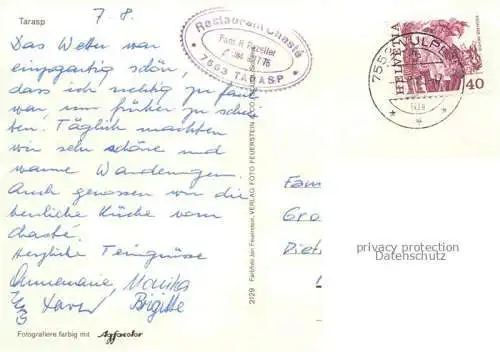 Tarasp
7. 8.
Das Wetter war
einzigartig schön,
dass ich richtig zu faul
war, um früher zu schrei-
ben. Täglich machten
wir sehr schöne und
warme Wanderungen.
Auch genossen wir die
herrliche Küche vom
Chasté.
Herzliche Feriengrüsse
Annemarie, Monika
Xaver Brigitte
Fotografiere farbig mit Agfacolor
Restaurant Chasté
Fam. R. Pazeller
7553 TARASP
2129 Farbfoto Jon Feuerstein, VERLAG FOTO FEUERSTEIN
HELVETIA
40
Fam
Gra
Diet
privacy protection
Datenschutz